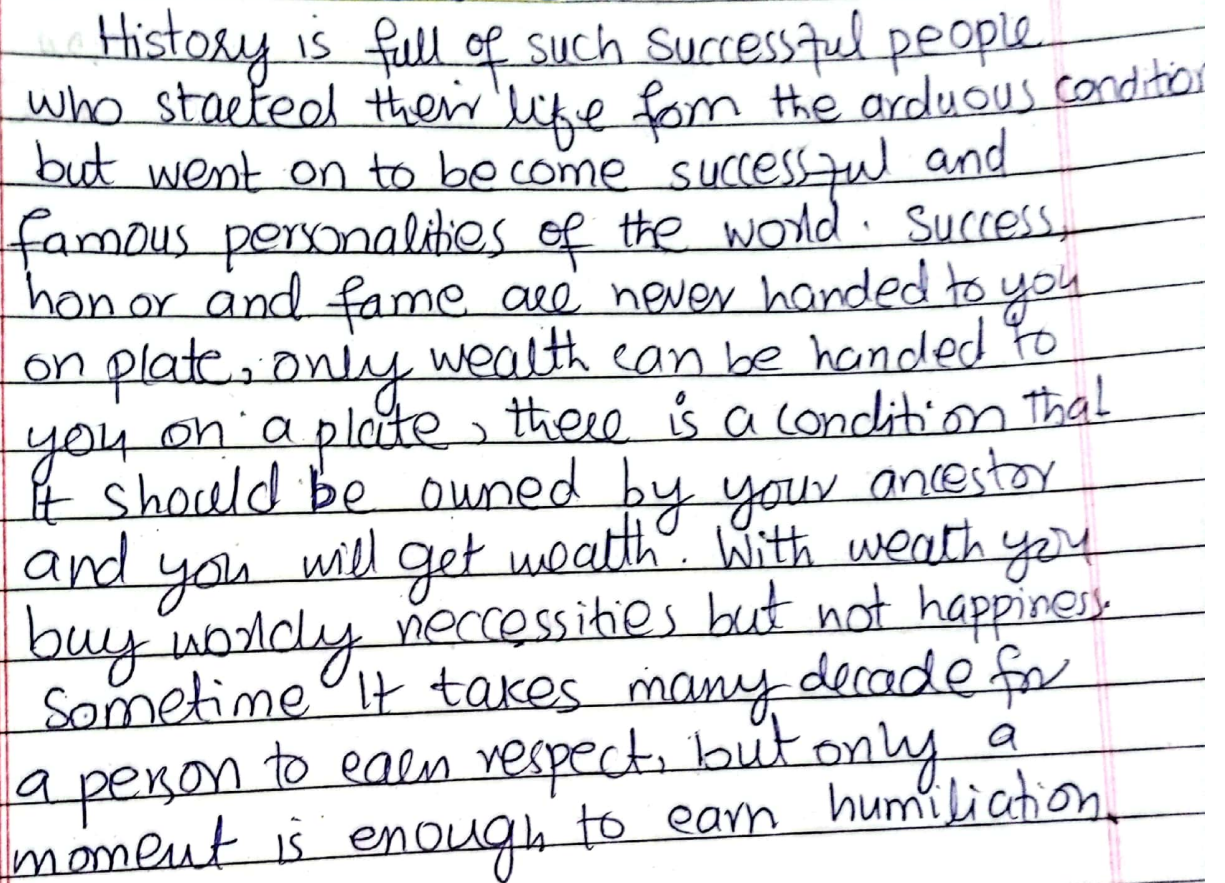 History is full of such successful people
who started their life fom the arduous condition
but went on to become successful and
famous personalities of the world. Success,
honor and fame are never handed to you
on plate, only wealth can be handed to
you on a plate, there is a condition that
It should be owned by your ancestor
and you will get wealth. With weath you
buy worldly neccessities but not happiness.
Sometime It takes many decade for
a person to earn respect, but only a
moment is enough to earn humiliation.